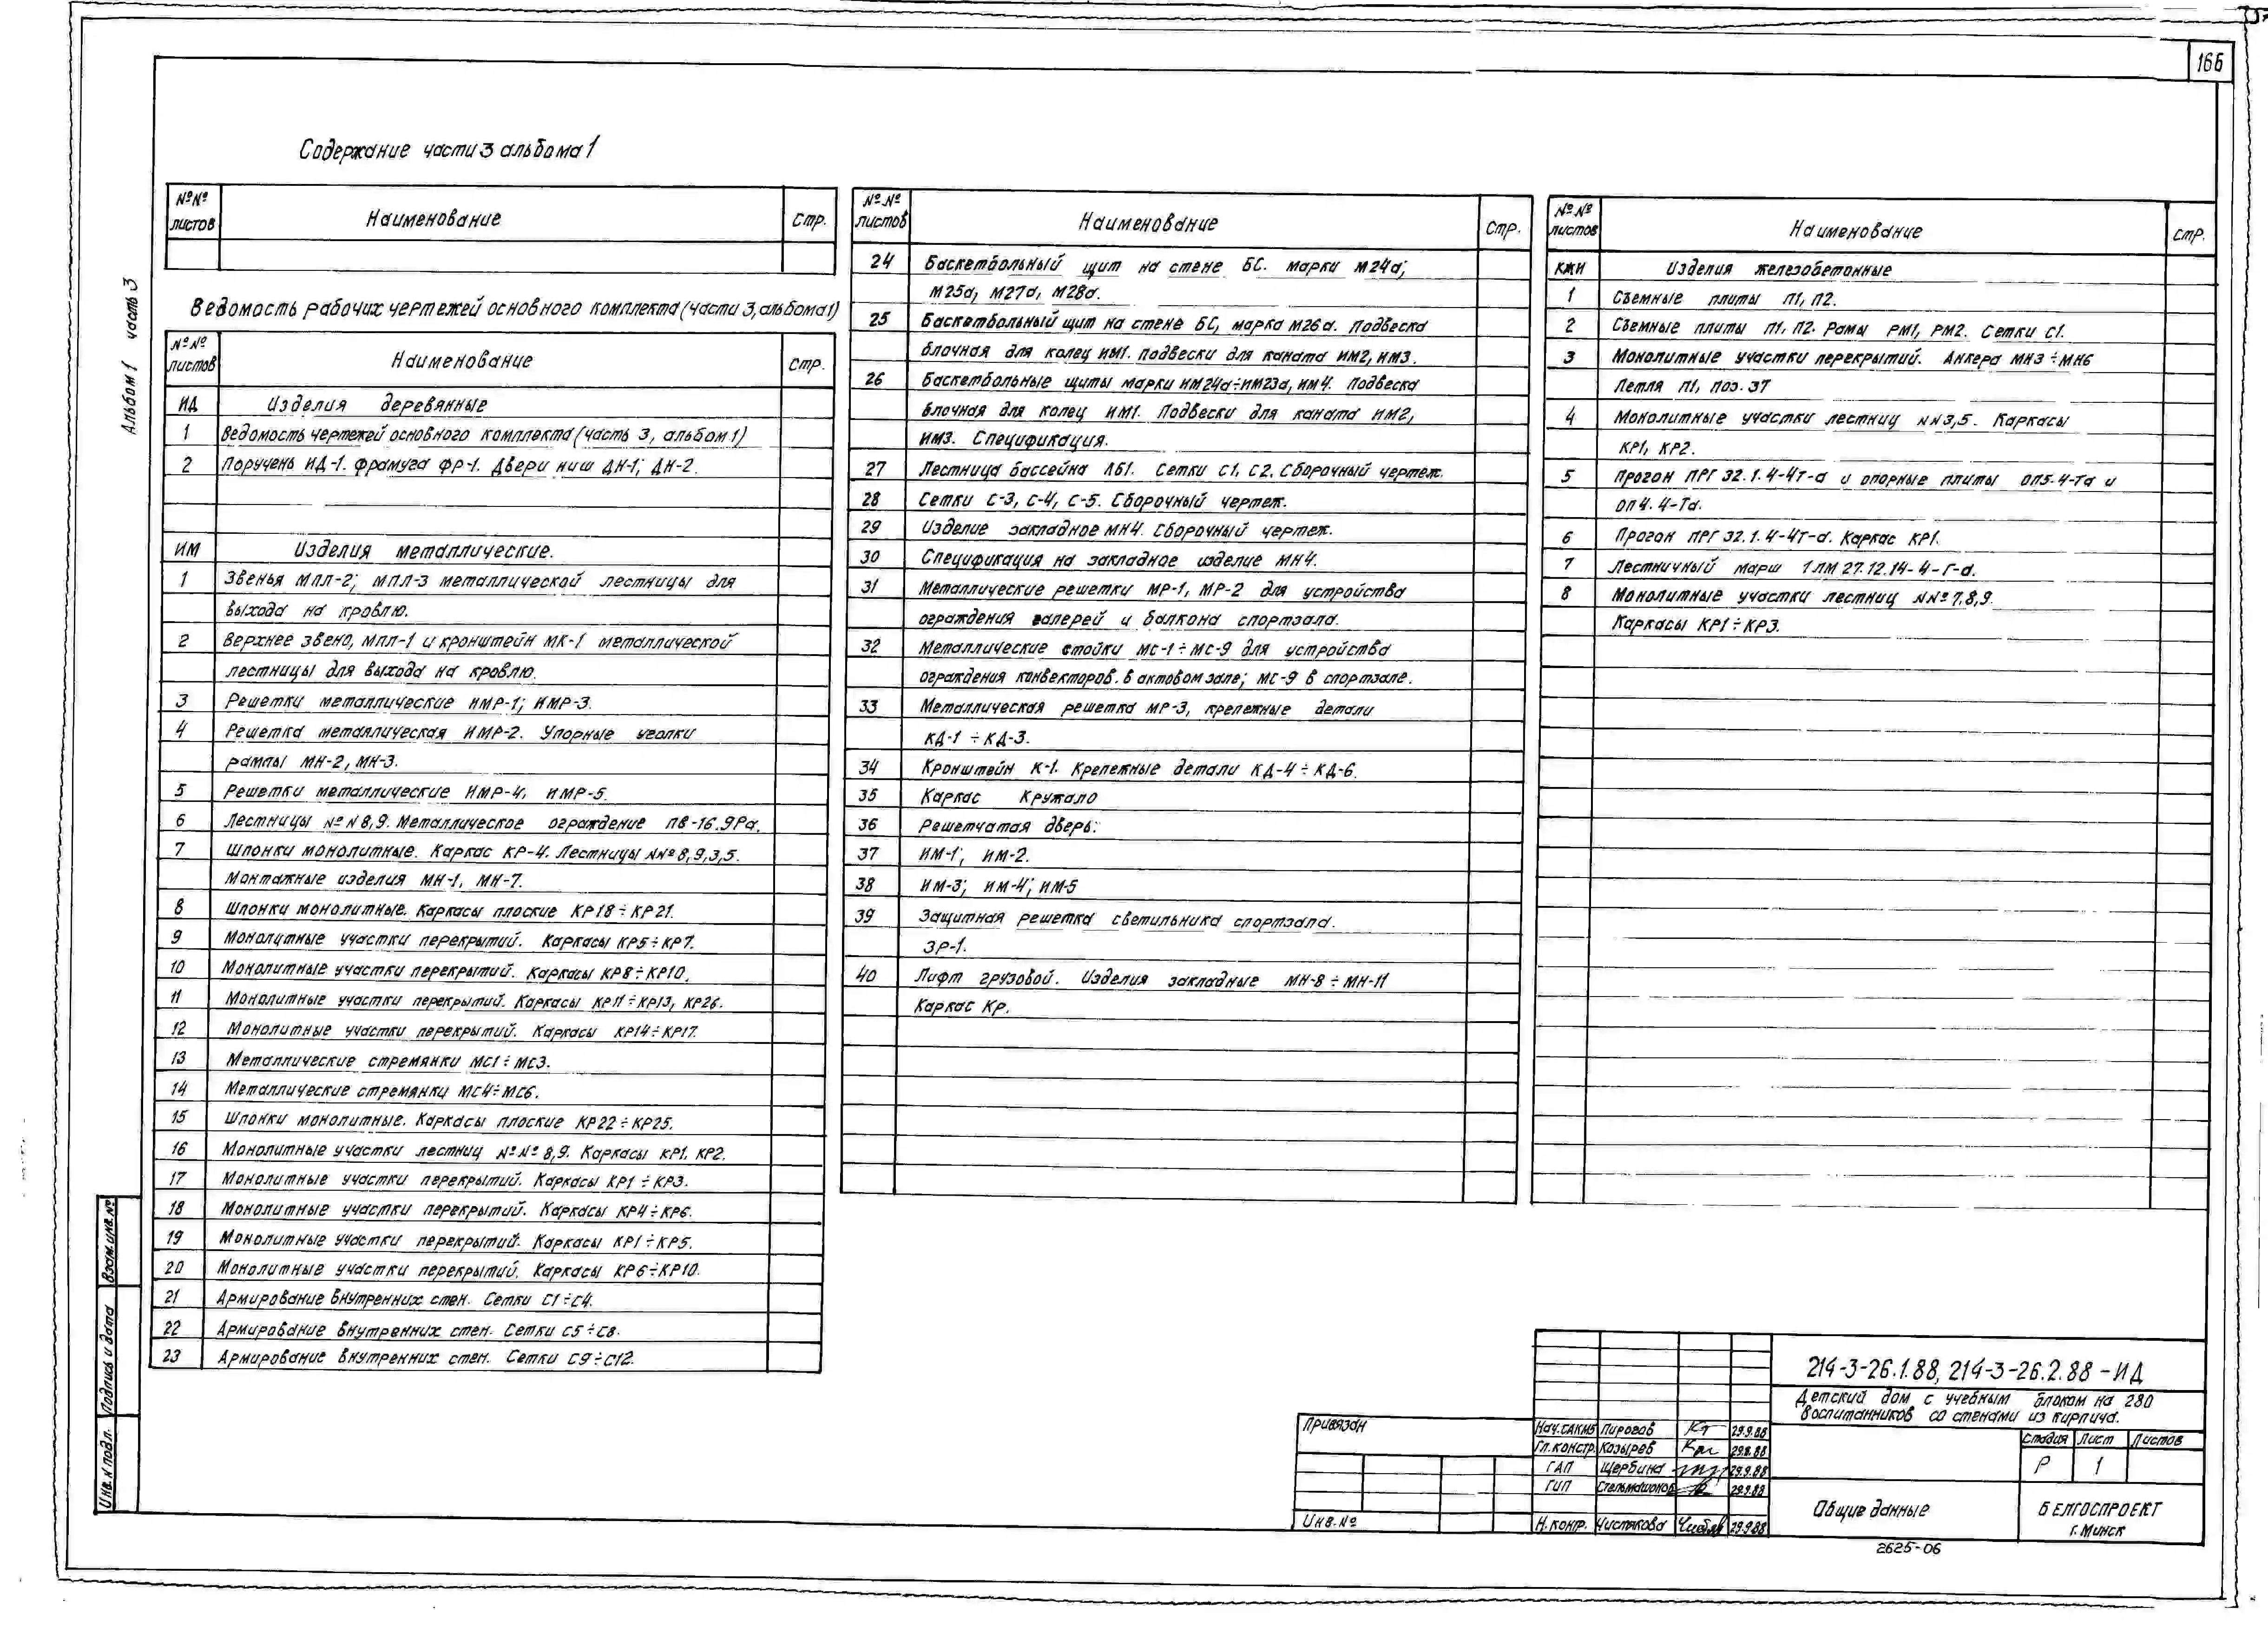 166
Содержание части 3 альбома 1
№№ листов Наименование Стр.
Ведомость рабочих чертежей основного комплекта (части 3, альбома 1)
№№ листов Наименование Стр.
ИД Изделия деревянные
1 Ведомость чертежей основного комплекта (часть 3, альбом 1)
2 Поручень ИД-1. фрамуга ФР-1. Двери ниш ДН-1; ДН-2.
ИМ Изделия металлические.
1 Звенья МПЛ-2; МПЛ-3 металлической лестницы для
выхода на кровлю.
2 Верхнее звено, МПЛ-1 и кронштейн МК-1 металлической
лестницы для выхода на кровлю.
3 Решетки металлические ИМР-1; ИМР-3.
4 Решетка металлическая ИМР-2. Упорные уголки
рампы МН-2, МН-3.
5 Решетки металлические ИМР-4, ИМР-5.
6 Лестницы №№ 8,9. Металлическое ограждение ПВ-16.9Ра.
7 Шпонки монолитные. Каркас КР-4. Лестницы №№ 8,9,3,5.
Монтажные изделия МН-1, МН-7.
8 Шпонки монолитные. Каркасы плоские КР18÷КР21.
9 Монолитные участки перекрытий. Каркасы КР5÷КР7.
10 Монолитные участки перекрытий. Каркасы КР8÷КР10.
11 Монолитные участки перекрытий. Каркасы КР11÷КР13, КР26.
12 Монолитные участки перекрытий. Каркасы КР14÷КР17.
13 Металлические стремянки МС1÷МС3.
14 Металлические стремянки МС4÷МС6.
15 Шпонки монолитные. Каркасы плоские КР22÷КР25.
16 Монолитные участки лестниц №№ 8,9. Каркасы КР1, КР2.
17 Монолитные участки перекрытий. Каркасы КР1÷КР3.
18 Монолитные участки перекрытий. Каркасы КР4÷КР6.
19 Монолитные участки перекрытий. Каркасы КР1÷КР5.
20 Монолитные участки перекрытий. Каркасы КР6÷КР10.
21 Армирование внутренних стен. Сетки С1÷С4.
22 Армирование внутренних стен. Сетки С5÷С8.
23 Армирование внутренних стен. Сетки С9÷С12.
№№ листов Наименование Стр.
24 Баскетбольный щит на стене БС. марки М24а;
М25а, М27а, М28а.
25 Баскетбольный щит на стене БС, марка М26а. Подвеска
блочная для колец ИМ1. Подвески для каната ИМ2, ИМ3.
26 Баскетбольные щиты марки ИМ24а÷ИМ23а, ИМ4. Подвеска
блочная для колец ИМ1. Подвески для каната ИМ2,
ИМ3. Спецификация.
27 Лестница бассейна ЛБ1. Сетки С1, С2. Сборочный чертеж.
28 Сетки С-3, С-4, С-5. Сборочный чертеж.
29 Изделие закладное МН4. Сборочный чертеж.
30 Спецификация на закладное изделие МН4.
31 Металлические решетки МР-1, МР-2 для устройства
ограждения галерей и балкона спортзала.
32 Металлические стойки МС-1÷МС-9 для устройства
ограждения конвекторов. в актовом зале; МС-9 в спортзале.
33 Металлическая решетка МР-3, крепежные детали
КД-1÷КД-3.
34 Кронштейн К-1. Крепежные детали КД-4÷КД-6.
35 Каркас Кружало
36 Решетчатая дверь.
37 ИМ-1; ИМ-2.
38 ИМ-3; ИМ-4; ИМ-5
39 Защитная решетка светильника спортзала.
ЗР-1.
40 Лифт грузовой. Изделия закладные МН-8÷МН-11
Каркас Кр.
№№ листов Наименование Стр.
КЖИ Изделия железобетонные
1 Съемные плиты П1, П2.
2 Съемные плиты П1, П2. Рамы РМ1, РМ2. Сетки С1.
3 Монолитные участки перекрытий. Анкера МН3÷МН6
Петля П1, поз. 37
4 Монолитные участки лестниц №№3,5. Каркасы
КР1, КР2.
5 Прогон ПРГ 32.1.4-4т-а и опорные плиты ОП5.4-Та и
ОП4.4-Та.
6 Прогон ПРГ 32.1.4-4т-а. Каркас КР1.
7 Лестничный марш 1ЛМ 27.12.14-4-Г-а.
8 Монолитные участки лестниц №№ 7,8,9.
Каркасы КР1÷КР3.
Альбом 1 часть 3
Взам. инв. №
Подпись и дата
Инв. № подл.
Привязан
Инв. №
Нач. САКМ5 Пирогов 29.9.88
Гл. констр. Козырев 29.9.88
ГАП Щербина 29.9.88
ГИП Стельмашонок 29.9.88
Н. контр. Чистякова 29.9.88
214-3-26.1.88, 214-3-26.2.88-ИД
Детский дом с учебным блоком на 280
воспитанников со стенами из кирпича.
Стадия Лист Листов
Р 1
Общие данные
БЕЛГОСПРОЕКТ
г. Минск
2625-06